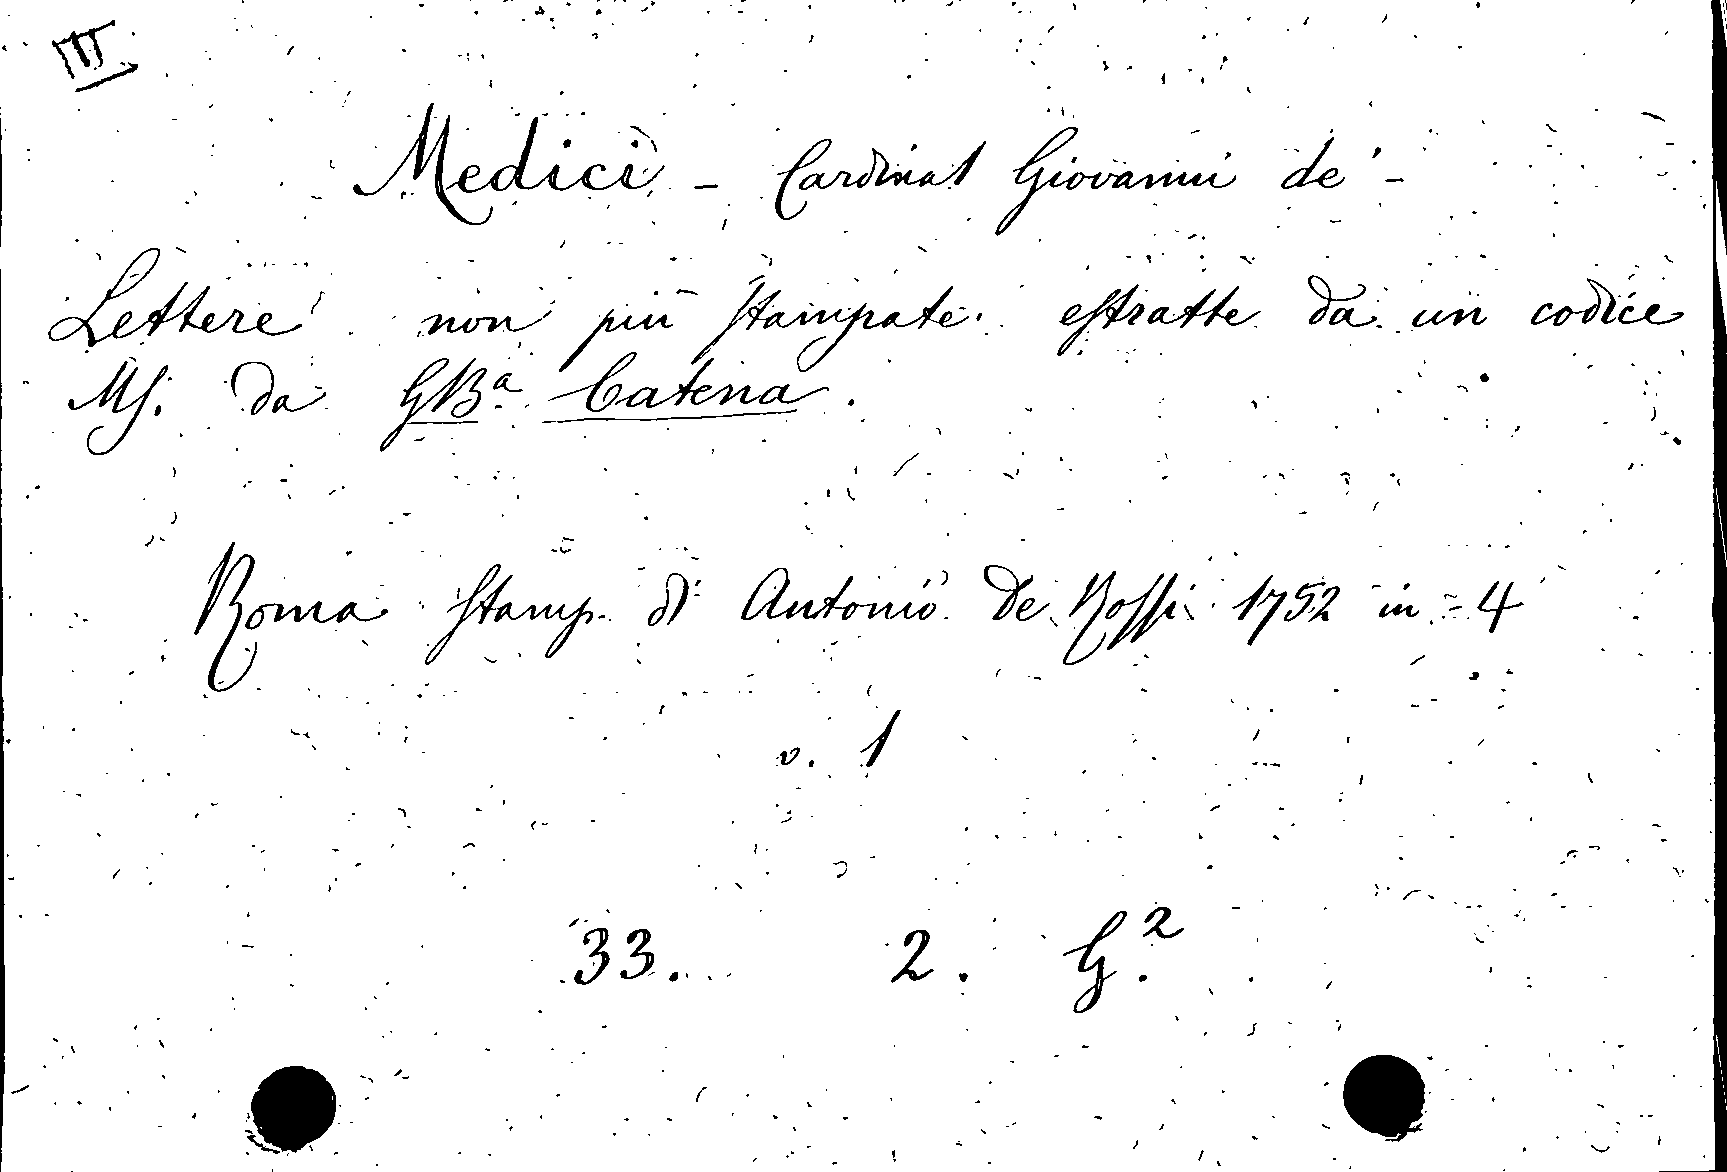 III
Medici - Cardinal Giovanni de' -
Lettere non più stampate estratte da un codice
Ms. da GBa. Catena.
Roma Stamp. di Antonio De Rossi 1752 in-4
v. 1
33. 2. G.2